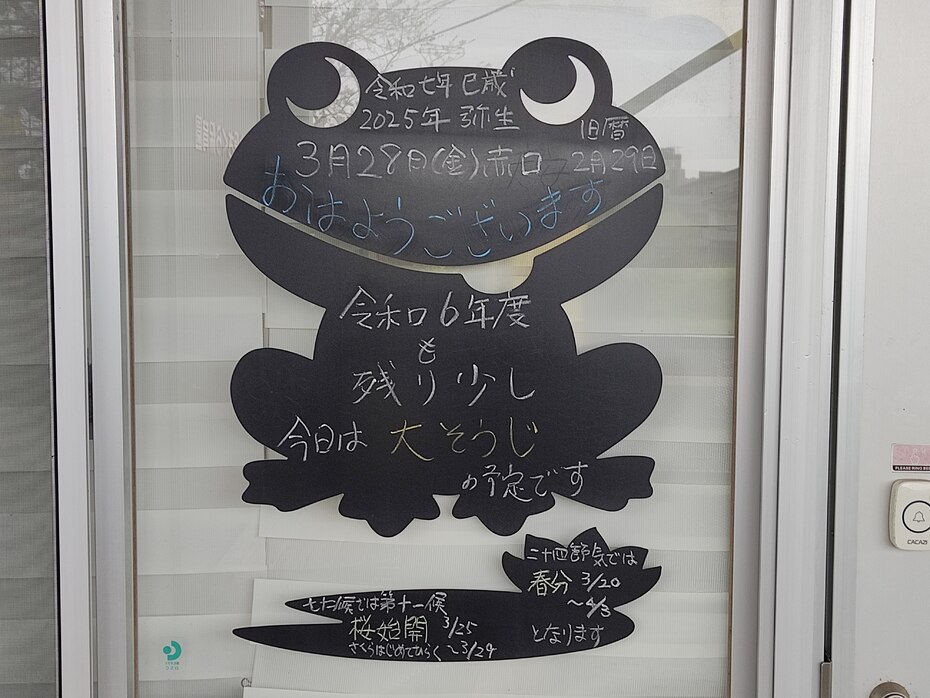 令和七年 巳歳
2025年 弥生
旧暦
3月28日(金)赤口 2月29日
おはようございます
令和6年度
も
残り少し
今日は 大そうじ
の予定です
二十四節気では
春分 3/20
～4/3
となります
七十二候では第十一候
桜始開 3/25
さくらはじめてひらく ～3/29
PLEASE RING BE
CACAZI